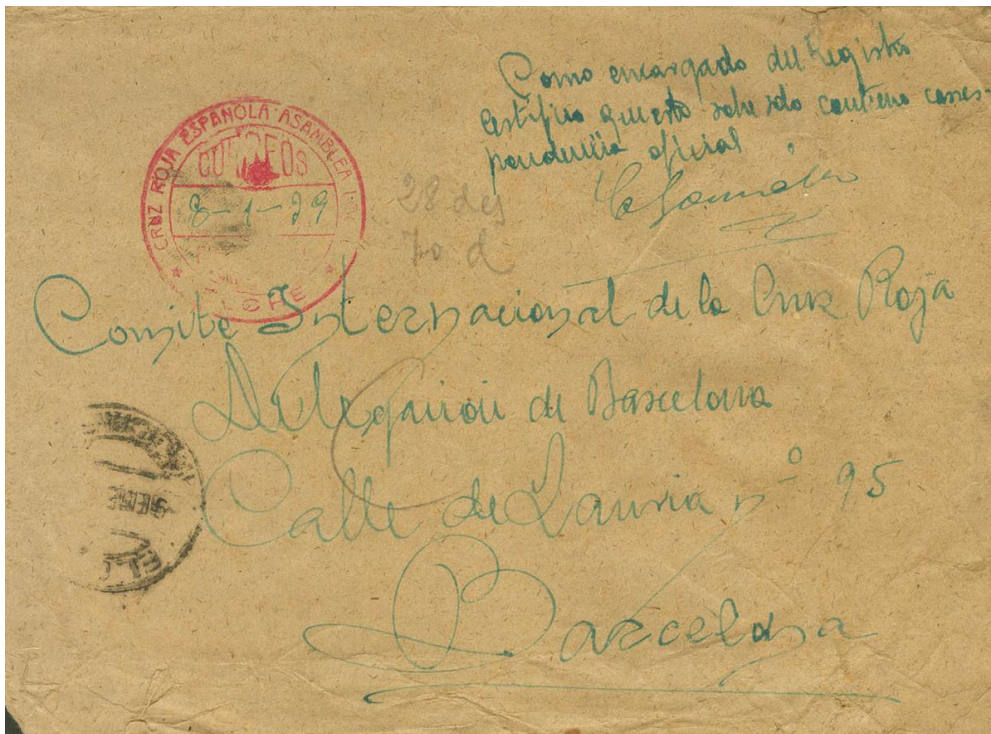 Como encargado del Registro
certifico que este sobre solo contiene corres-
pondencia oficial
CRUZ ROJA ESPAÑOLA · ASAMBLEA
CORREOS
8-1-39
28 des
70 d
Comite Internacional de la Cruz Roja
Delegacion de Barcelona
Calle de Lauria nº 95
Barcelona